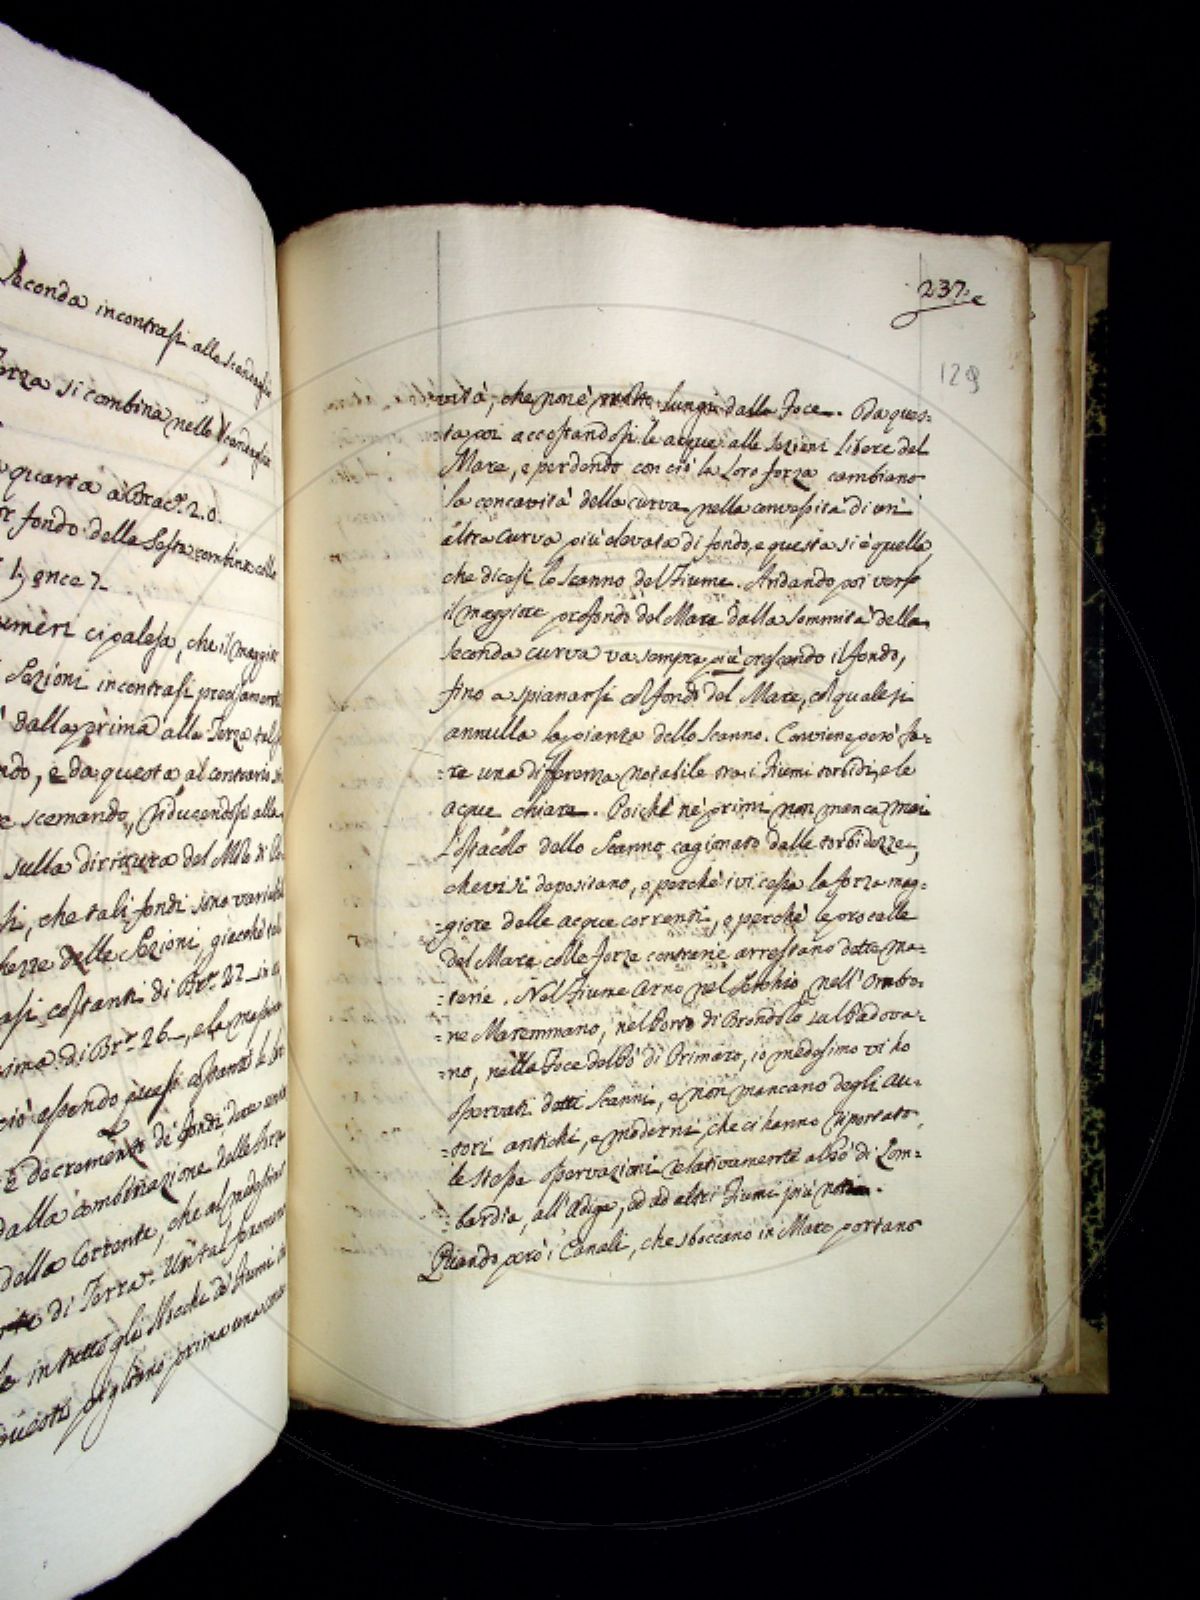 Seconda incontrasi allo scandaglio
Forza si combina nello scandaglio
quarta a Brac. 2.0.
fondo della Sesta combina colla
once 7
numeri ci palesa, che il maggior
Sezioni incontrasi precisamente
dalla prima alla Terza
ndo, e da questa al contrario
e scemando, riducendosi alla
sulla dirittura del Molo di
si, che tali fondi sono variabili
hezze delle Sezioni, giacchè
asi costanti di Br. 22
sima di Br. 26, e la massima
ciò essendo quasi costanti le
e decrementi di fondi
dalla combinazione delle forze
della Corrente, che al medesimo
di Terra. Un tal fenomeno
in tutte gli Sbocchi de' fiumi
queste pigliano prima una
237.
129
vità, che non è molto lungi dalla Foce. Da ques=
ta poi accostandosi le acque alle Sezioni libere del
Mare, e perdendo con ciò la loro forza cambiano
la concavità della curva nella convessità di un'
altra Curva più elevata di fondo, e questa si è quella,
che dicesi lo Scanno del Fiume. Andando poi verso
il maggiore profondo del Mare dalla sommità della
seconda curva va sempre più crescendo il fondo,
fino a spianarsi col fondo del Mare, col quale si
annulla la pianta dello Scanno. Conviene però fa=
=re una differenza notabile tra i Fiumi torbidi, e le
acque chiare. Poichè nè primi non manca mai
l'ostacolo dello Scanno cagionato dalle torbidezze,
che vi si depositano, o perchè ivi cessa la forza mag=
=giore delle acque correnti, o perchè le procelle
del Mare colle forze contrarie arrestano dette ma=
=terie. Nel Fiume Arno nel Serchio, nell'Ombro=
=ne Maremmano, nel Porto di Brondolo sul Padova=
=no, nella Foce del Pò di Primaro, io medesimo vi ho
osservati detti Scanni, e non mancano degli Au=
=tori antichi, e moderni che ci hanno riportato
le stesse osservazioni relativamente al Pò di Lom=
=bardia, all'Adige, ed ad altri Fiumi più noti.
Quando però i Canali, che sboccano in Mare portano